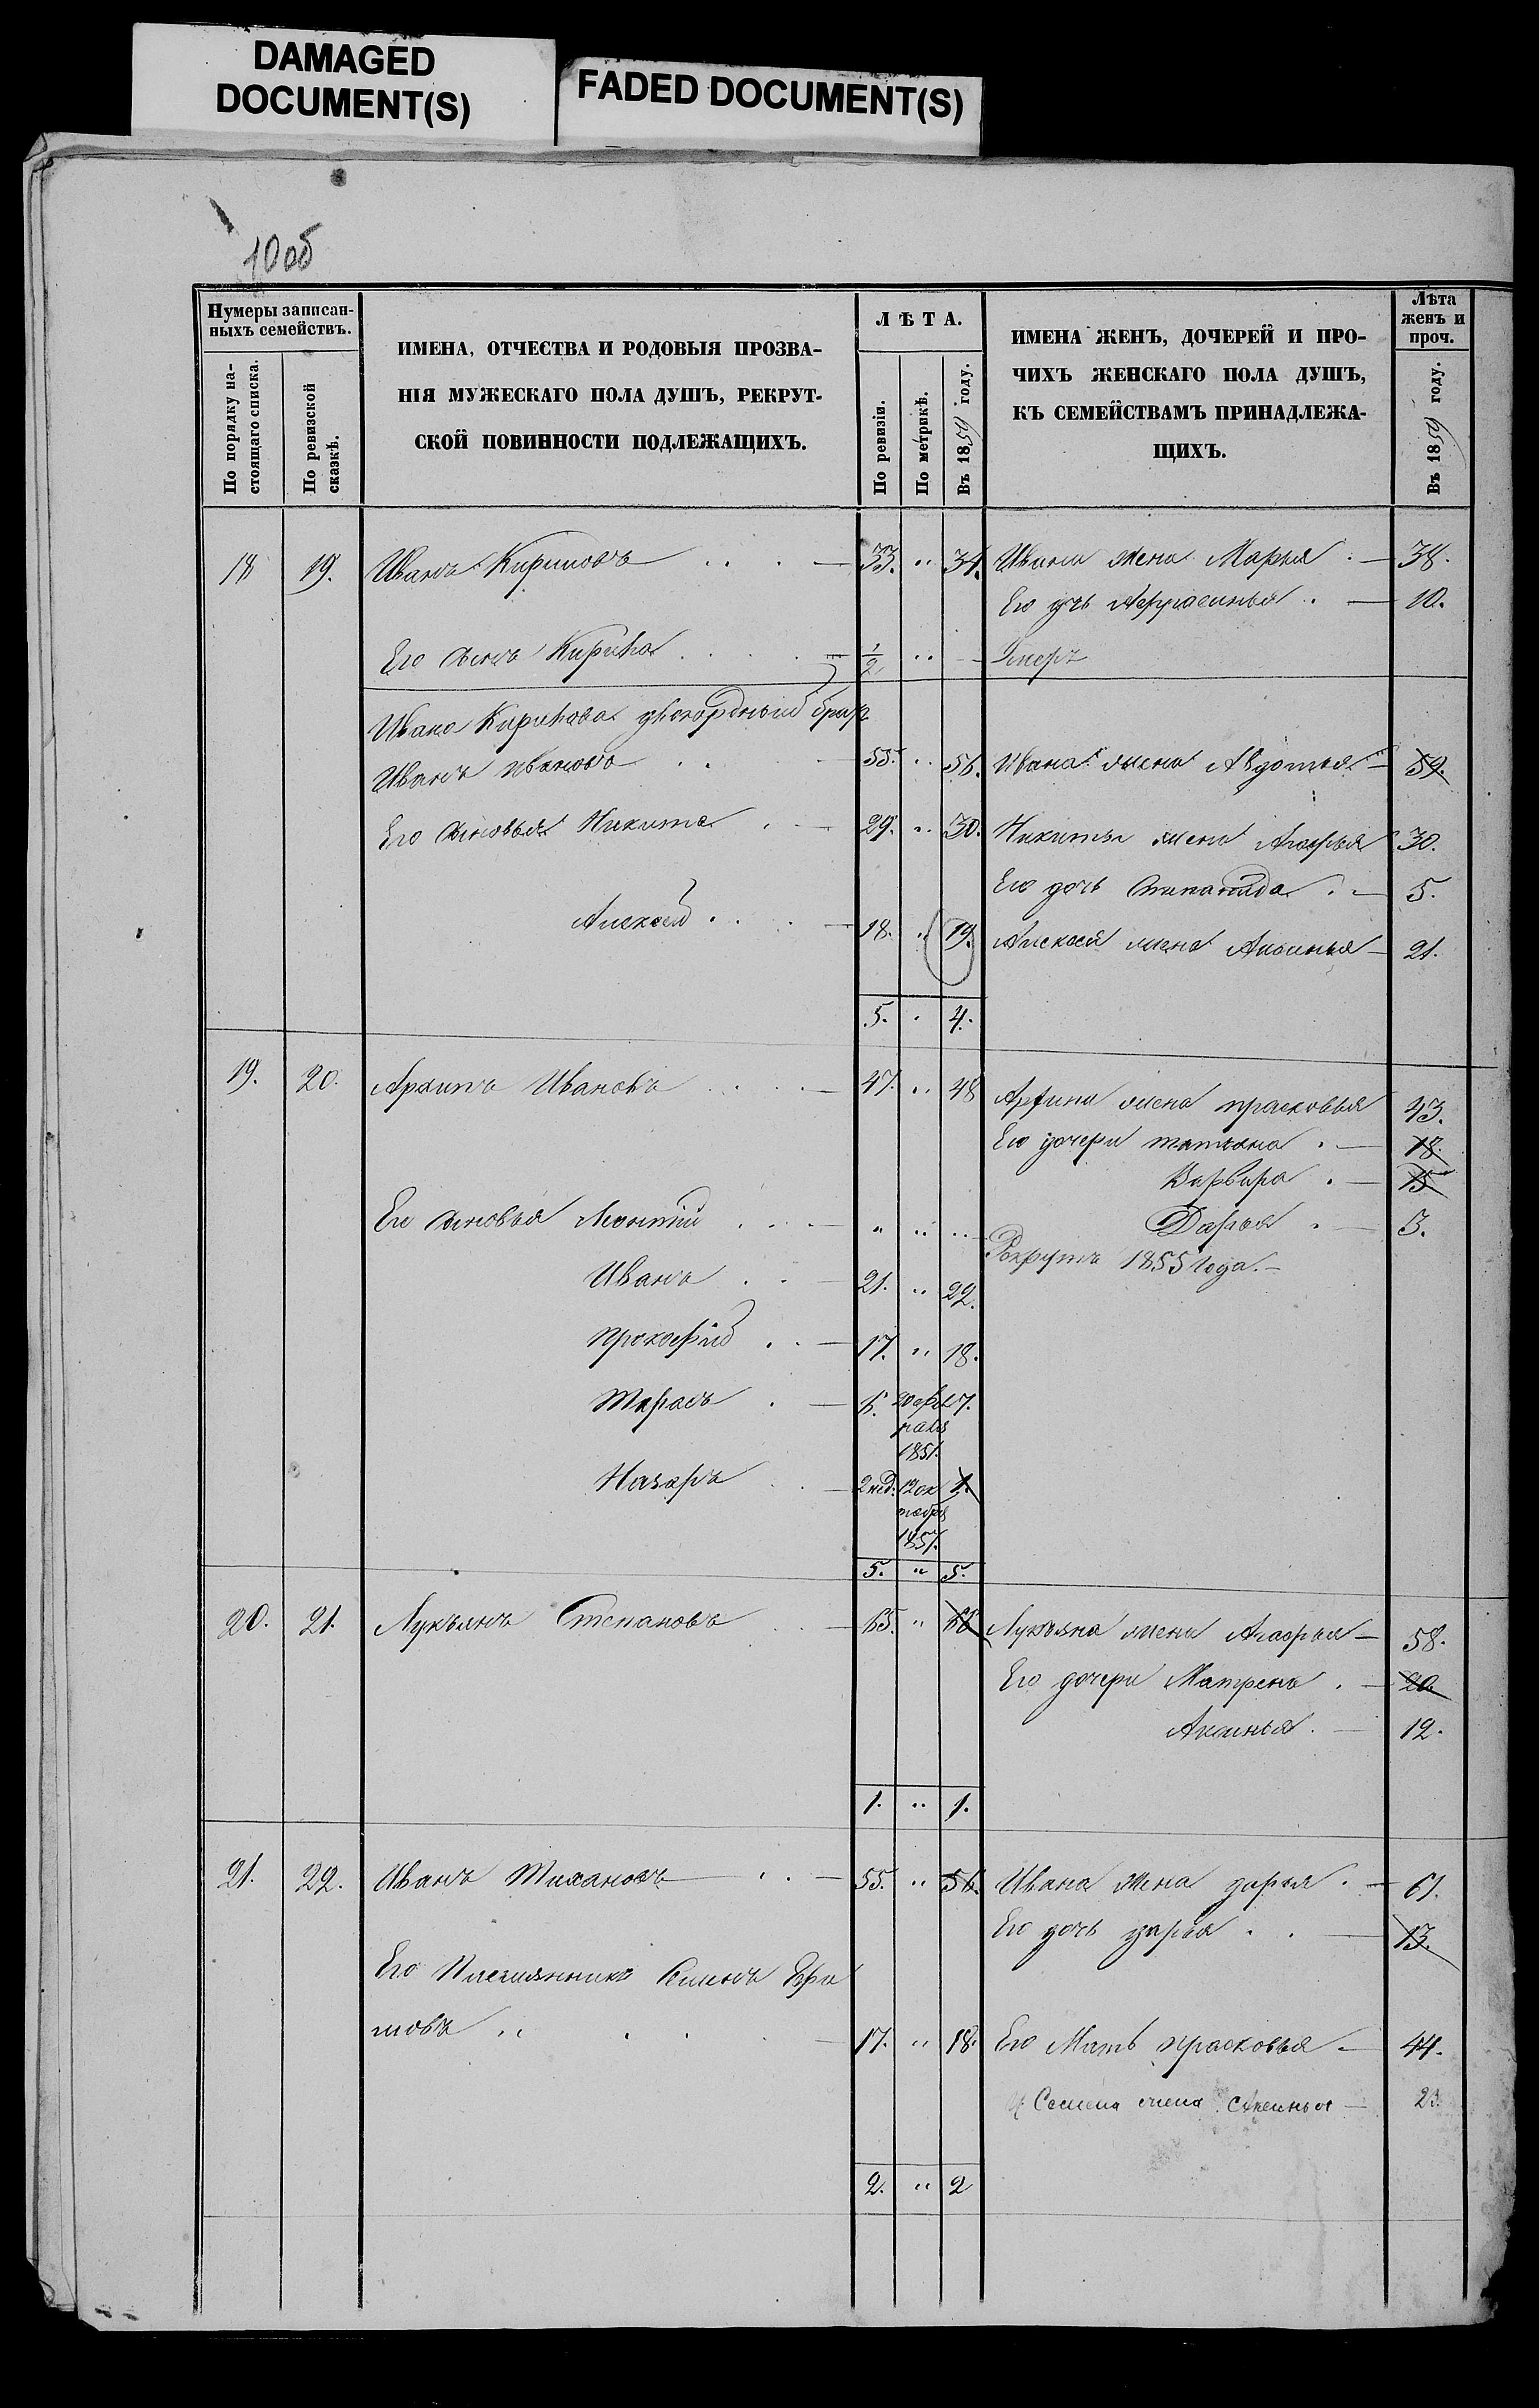 DAMAGED
DOCUMENT(S)
FADED DOCUMENT(S)
10об
Нумеры записан-
ныхъ семействъ.
По порядку на-
стоящаго списка.
По ревизской
сказкѣ.
ИМЕНА, ОТЧЕСТВА И РОДОВЫЯ ПРОЗВА-
НІЯ МУЖЕСКАГО ПОЛА ДУШЪ, РЕКРУТ-
СКОЙ ПОВИННОСТИ ПОДЛЕЖАЩИХЪ.
ЛѢТА.
По ревизіи.
По метрикѣ.
Въ 1859 году.
ИМЕНА ЖЕНЪ, ДОЧЕРЕЙ И ПРО-
ЧИХЪ ЖЕНСКАГО ПОЛА ДУШЪ,
КЪ СЕМЕЙСТВАМЪ ПРИНАДЛЕЖА-
ЩИХЪ.
Лѣта
женъ и
проч.
Въ 1859 году.
18 19. Иванъ Кириловъ 33. " 34. Ивана жена Марья 38.
Его дчь Афрасинья 10.
Его сынъ Кирила 1/2 " Умеръ
Ивана Кирилова двоюродный братъ
Иванъ Ивановъ 55. " 56. Ивана жена Авдотья 59.
Его сыновья Никита 29. " 30. Никиты жена Агафья 30.
Его дочь Степанида 5.
Алексей 18. " 19. Алексея жена Аксинья 21.
5. " 4.
19. 20. Архипъ Ивановъ 47. " 48 Архипа жена прасковья 43.
Его дочери татьяна 18.
Варвара 15
Его сыновья Леонтий " " " Дарья 3.
Рекрутъ 1855 года.
Иванъ 21. " 22.
прокофий 17. " 18.
Тарасъ 6. 20 фев 7.
раля
1851.
Назаръ 2 нед. 12 ок 1.
тября
1857.
5. " 5.
20. 21. Лукьянъ Степановъ 65. " 66 Лукьяна жена Агафья 58.
Его дочери Матрена 20
Аксинья 12.
1. " 1.
21. 22. Иванъ Тихановъ 55. " 56. Ивана жена дарья 61.
Его дочь дарья 13.
Его Племянникъ Семенъ Ефи
мовъ " 17. " 18. Его Мать прасковья 44.
Семена жена Аксинья 23.
2. " 2